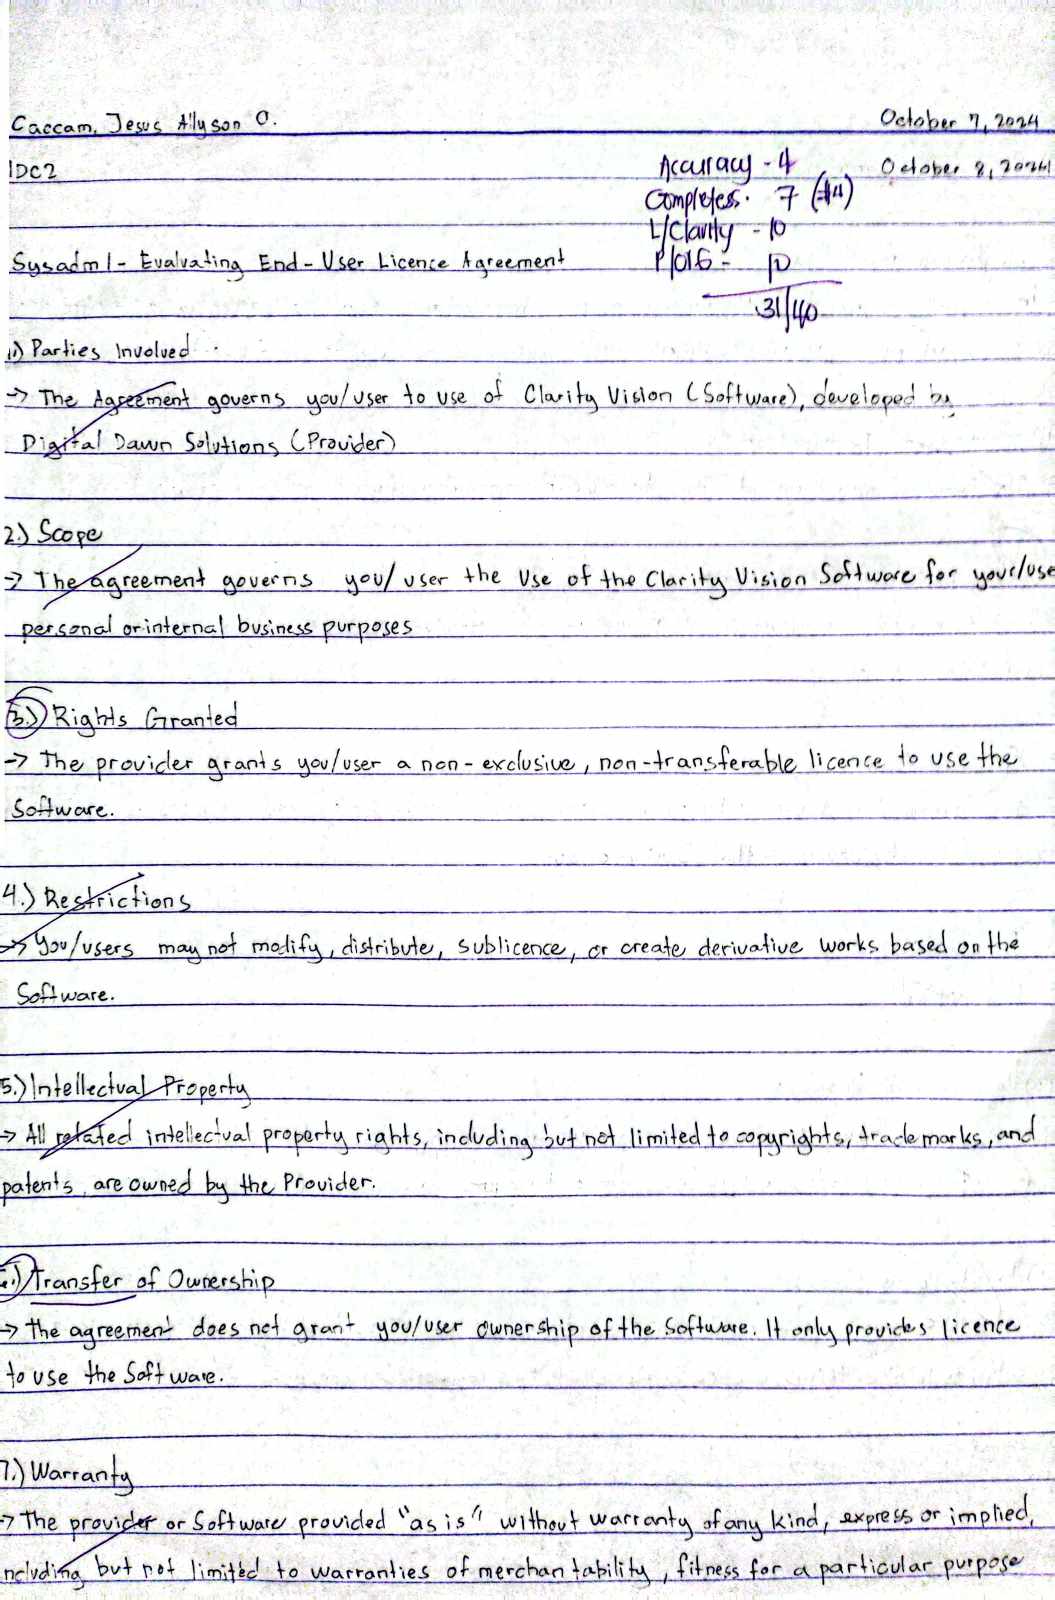 Caccam, Jesus Allyson O.
October 7, 2024
1DC2
October 8, 2024
Accuracy - 4
Completess. 7
L/Clarity - 10
P/O1G - 10
31/40
Sysadm1 - Evaluating End-User Licence Agreement
1.) Parties Involved
→ The Agreement governs you/user to use of Clarity Vision (Software), developed by
Digital Dawn Solutions (Provider)
2.) Scope
→ The agreement governs you/user the use of the Clarity Vision Software for your/use
personal or internal business purposes
3.) Rights Granted
→ The provider grants you/user a non-exclusive, non-transferable licence to use the
Software.
4.) Restrictions
→ You/users may not modify, distribute, sublicence, or create derivative works based on the
Software.
5.) Intellectual Property
→ All related intellectual property rights, including but not limited to copyrights, trademarks, and
patents, are owned by the Provider.
Transfer of Ownership
→ The agreement does not grant you/user ownership of the Software. It only provides licence
to use the Software.
7.) Warranty
→ The provider or Software provided "as is" without warranty of any kind, express or implied,
ncluding but not limited to warranties of merchantability, fitness for a particular purpose